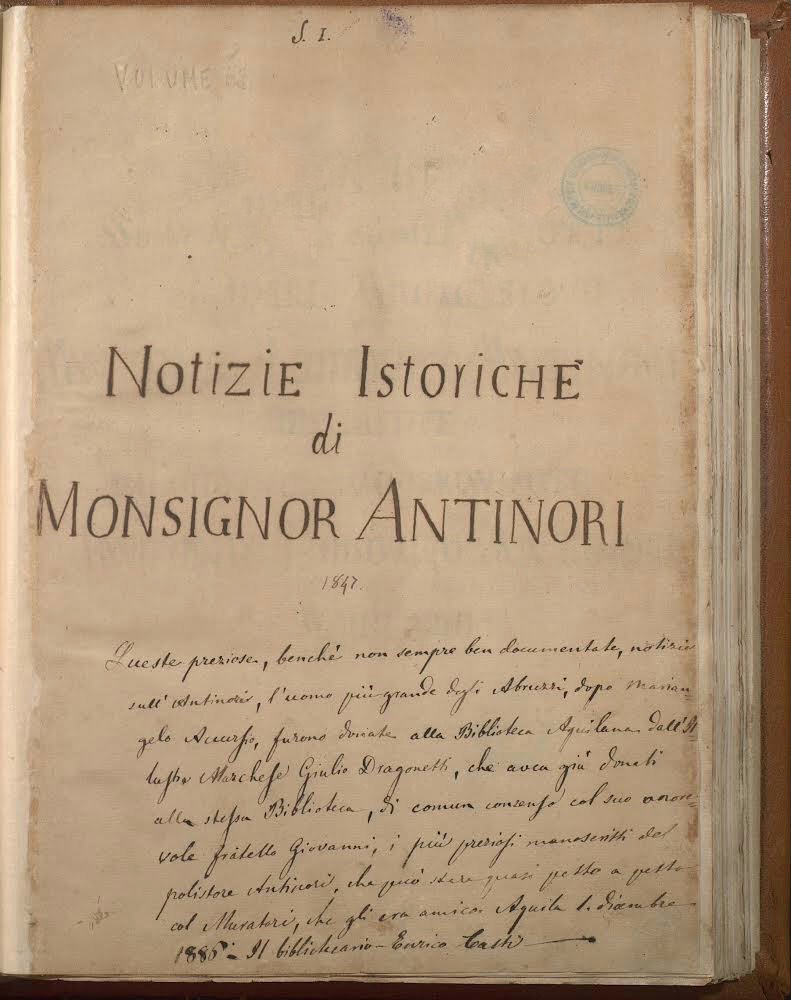 S. I.
VOLUME
NOTIZIE ISTORICHE
di
MONSIGNOR ANTINORI
1847.
Queste preziose, benchè non sempre ben documentate, notizie
sull'Antinori, l'uomo più grande degli Abruzzi, dopo Marian-
gelo Accursio, furono donate alla Biblioteca Aquilana dall'Il-
lustre Marchese Giulio Dragonetti, che avea già donati
alla stessa Biblioteca, di comun consenso col suo onore-
vole fratello Giovanni, i più preziosi manoscritti del
polistore Antinori, che può stare quasi petto a petto
col Muratori, che gli era amico. Aquila 1. dicembre
1886 - Il bibliotecario - Enrico Casti